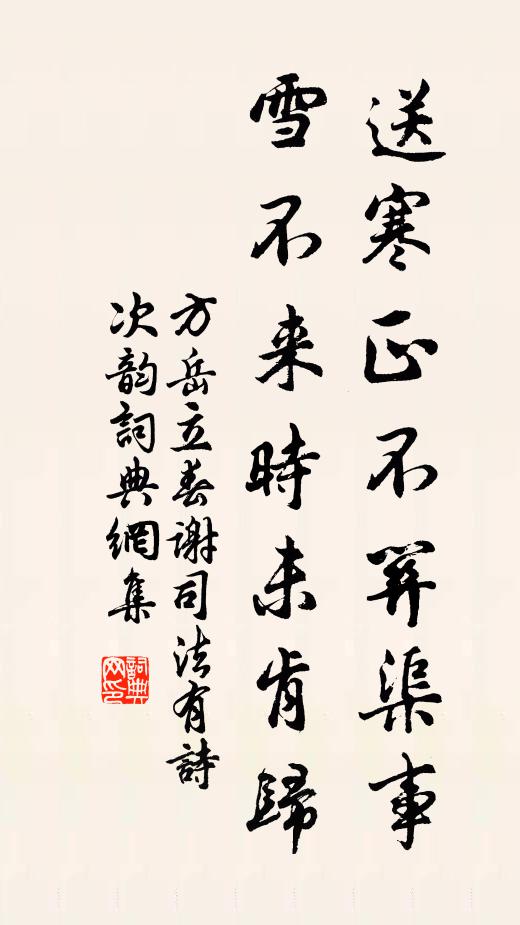 送寒正不關渠事
雪不来時未肯歸
方岳立春谢司法有詩
次韵詞典網集
詞典网印